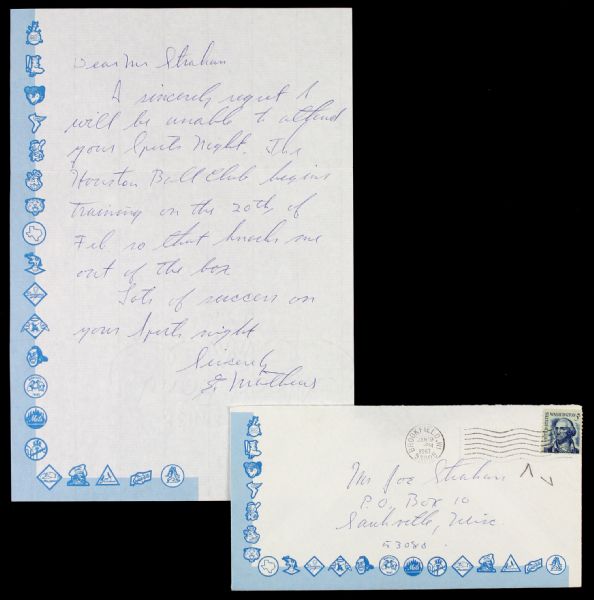 Dear Mr Strahan
A sincerely regret I
will be unable to attend
your Sports Night. The
Houston Ball Club begins
training on the 20th of
Feb so that knocks me
out of the box
Lots of success on
your Sports night
Sincerely
E Mathews
BROOKFIELD, WI
JAN 9
PM
1967
WASHINGTON
Mr Joe Strahan
P.O. Box 10
Saukville, Wisc.
53080